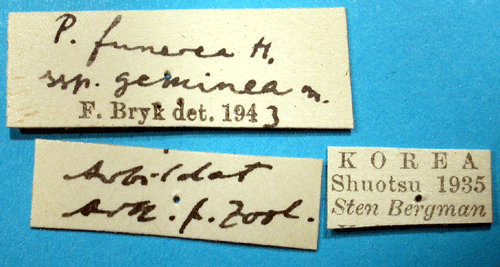 P. funerea H.
ssp. geminea m.
F. Bryk det. 1943
Avbildat
Ark. f. Zool.
KOREA
Shuotsu 1935
Sten Bergman